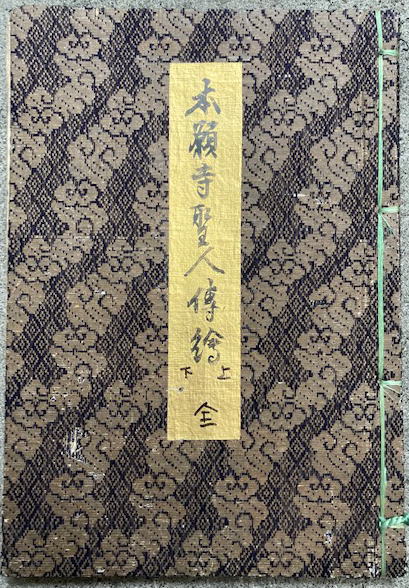 本願寺聖人傳繪
上
下
全